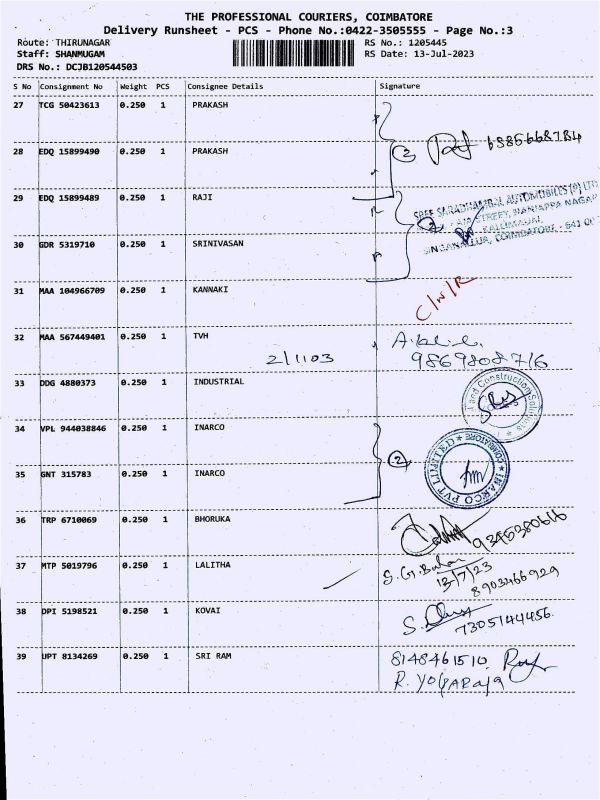 THE PROFESSIONAL COURIERS, COIMBATORE
Delivery Runsheet - PCS - Phone No.:0422-3505555 - Page No.:3
Route: THIRUNAGAR RS No.: 1205445
Staff: SHANMUGAM RS Date: 13-Jul-2023
DRS No.: DCJB120544503
S No Consignment No Weight PCS Consignee Details Signature
27 TCG 50423613 0.250 1 PRAKASH
2 6385668784
28 EDQ 15899490 0.250 1 PRAKASH
29 EDQ 15899489 0.250 1 RAJI
SREE SARADHAMBAL AUTOMOBILES (P) LTD
STREET, MANIAPPA NAGAR
2 KALLIMADAI,
SINGANALLUR, COIMBATORE - 641 0
30 GDR 5319710 0.250 1 SRINIVASAN
31 MAA 104966709 0.250 1 KANNAKI C/N/R
32 MAA 567449401 0.250 1 TVH
2/1103 9869808716
33 DDG 4880373 0.250 1 INDUSTRIAL
and Construction Solutions
34 VPL 944038846 0.250 1 INARCO
2 INARCO PVT LIMITED COIMBATORE
35 GNT 315783 0.250 1 INARCO
36 TRP 6710069 0.250 1 BHORUKA
37 MTP 5019796 0.250 1 LALITHA
13/7/23
8903466929
38 DPI 5198521 0.250 1 KOVAI
7305144456
39 UPT 8134269 0.250 1 SRI RAM 8148461510
R. YOGARAJA